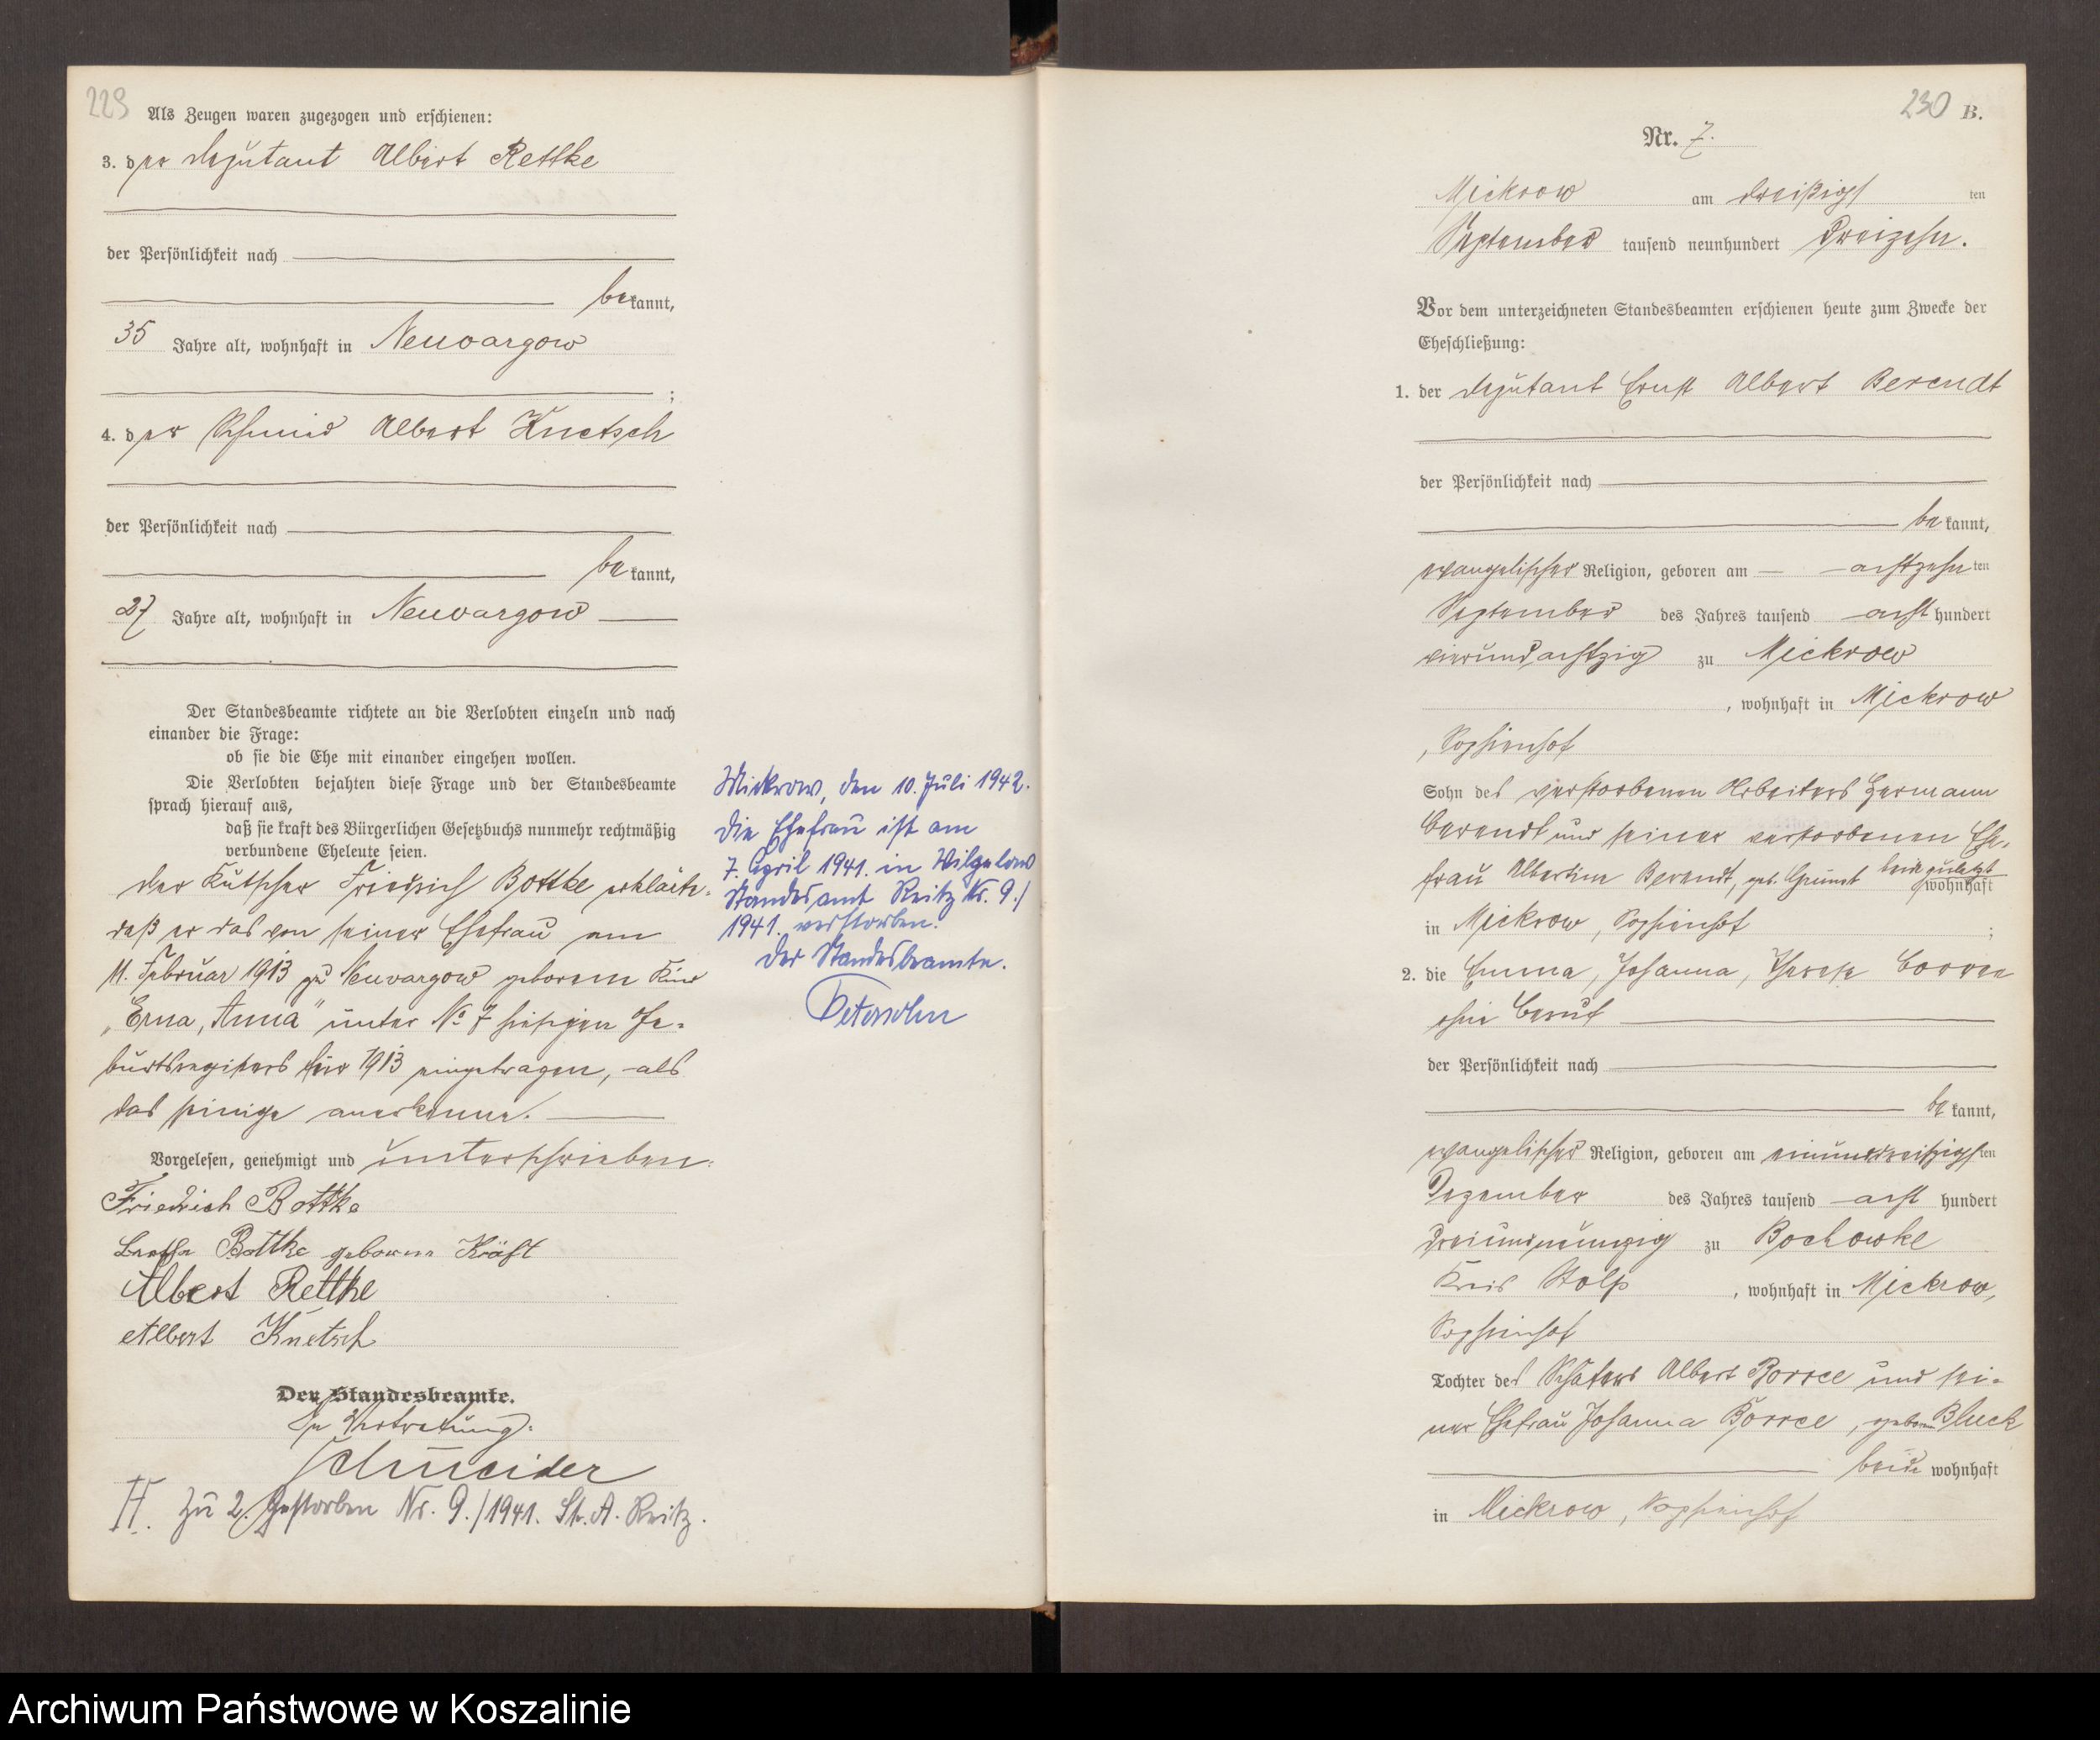 229
Als Zeugen waren zugezogen und erschienen:
3. der Deputant Albert Rettke
der Persönlichkeit nach
bekannt,
35 Jahre alt, wohnhaft in Neuvargow
;
4. der Schmied Albert Knetsch
der Persönlichkeit nach
bekannt,
27 Jahre alt, wohnhaft in Neuvargow
Der Standesbeamte richtete an die Verlobten einzeln und nach
einander die Frage:
ob sie die Ehe mit einander eingehen wollen.
Die Verlobten bejahten diese Frage und der Standesbeamte
sprach hierauf aus,
daß sie kraft des Bürgerlichen Gesetzbuchs nunmehr rechtmäßig
verbundene Eheleute seien.
Der Kutscher Friedrich Bottke erklärte,
daß er das von seiner Ehefrau am
11. Februar 1913 zu Neuvargow geborene Kind
„Erna, Anna" unter No 7 hiesigen Ge-
burtsregisters für 1913 eingetragen, als
das seinige anerkenne.
Vorgelesen, genehmigt und unterschrieben:
Friedrich Bottke
Bertha Bottke geborene Kräft
Albert Rettke
Albert Knetsch
Der Standesbeamte.
In Vertretung.
Schneider
H. Zu 2. Gestorben Nr. 9./1941. St. A. Reitz.
Mickrow, den 10. Juli 1942.
Die Ehefrau ist am
7. April 1941. in Wilgelow
Standesamt Reitz Nr. 9./
1941. verstorben.
Der Standesbeamte.
Petersohn
230
B.
Nr. 7.
Mickrow am dreißigsten
September tausend neunhundert dreizehn.
Vor dem unterzeichneten Standesbeamten erschienen heute zum Zwecke der
Eheschließung:
1. der Deputant Ernst Albert Berendt
der Persönlichkeit nach
bekannt,
evangelischer Religion, geboren am achtzehnten
September des Jahres tausend achthundert
vierundachtzig zu Mickrow
, wohnhaft in Mickrow
, Sophienhof
Sohn des verstorbenen Arbeiters Hermann
Berendt und seiner verstorbenen Ehe-
frau Albertine Berendt, geb. Grünst beide zuletzt wohnhaft
in Mickrow, Sophienhof ;
2. die Emma, Johanna, Therese Borree
ohne Beruf
der Persönlichkeit nach
bekannt,
evangelischer Religion, geboren am einunddreißigsten
Dezember des Jahres tausend acht hundert
dreiundneunzig zu Bochowke
Kreis Stolp, wohnhaft in Mickrow,
Sophienhof
Tochter des Schäfers Albert Borree und sei-
ner Ehefrau Johanna Borree, geborene Bluck
beide wohnhaft
in Mickrow, Sophienhof
Archiwum Państwowe w Koszalinie